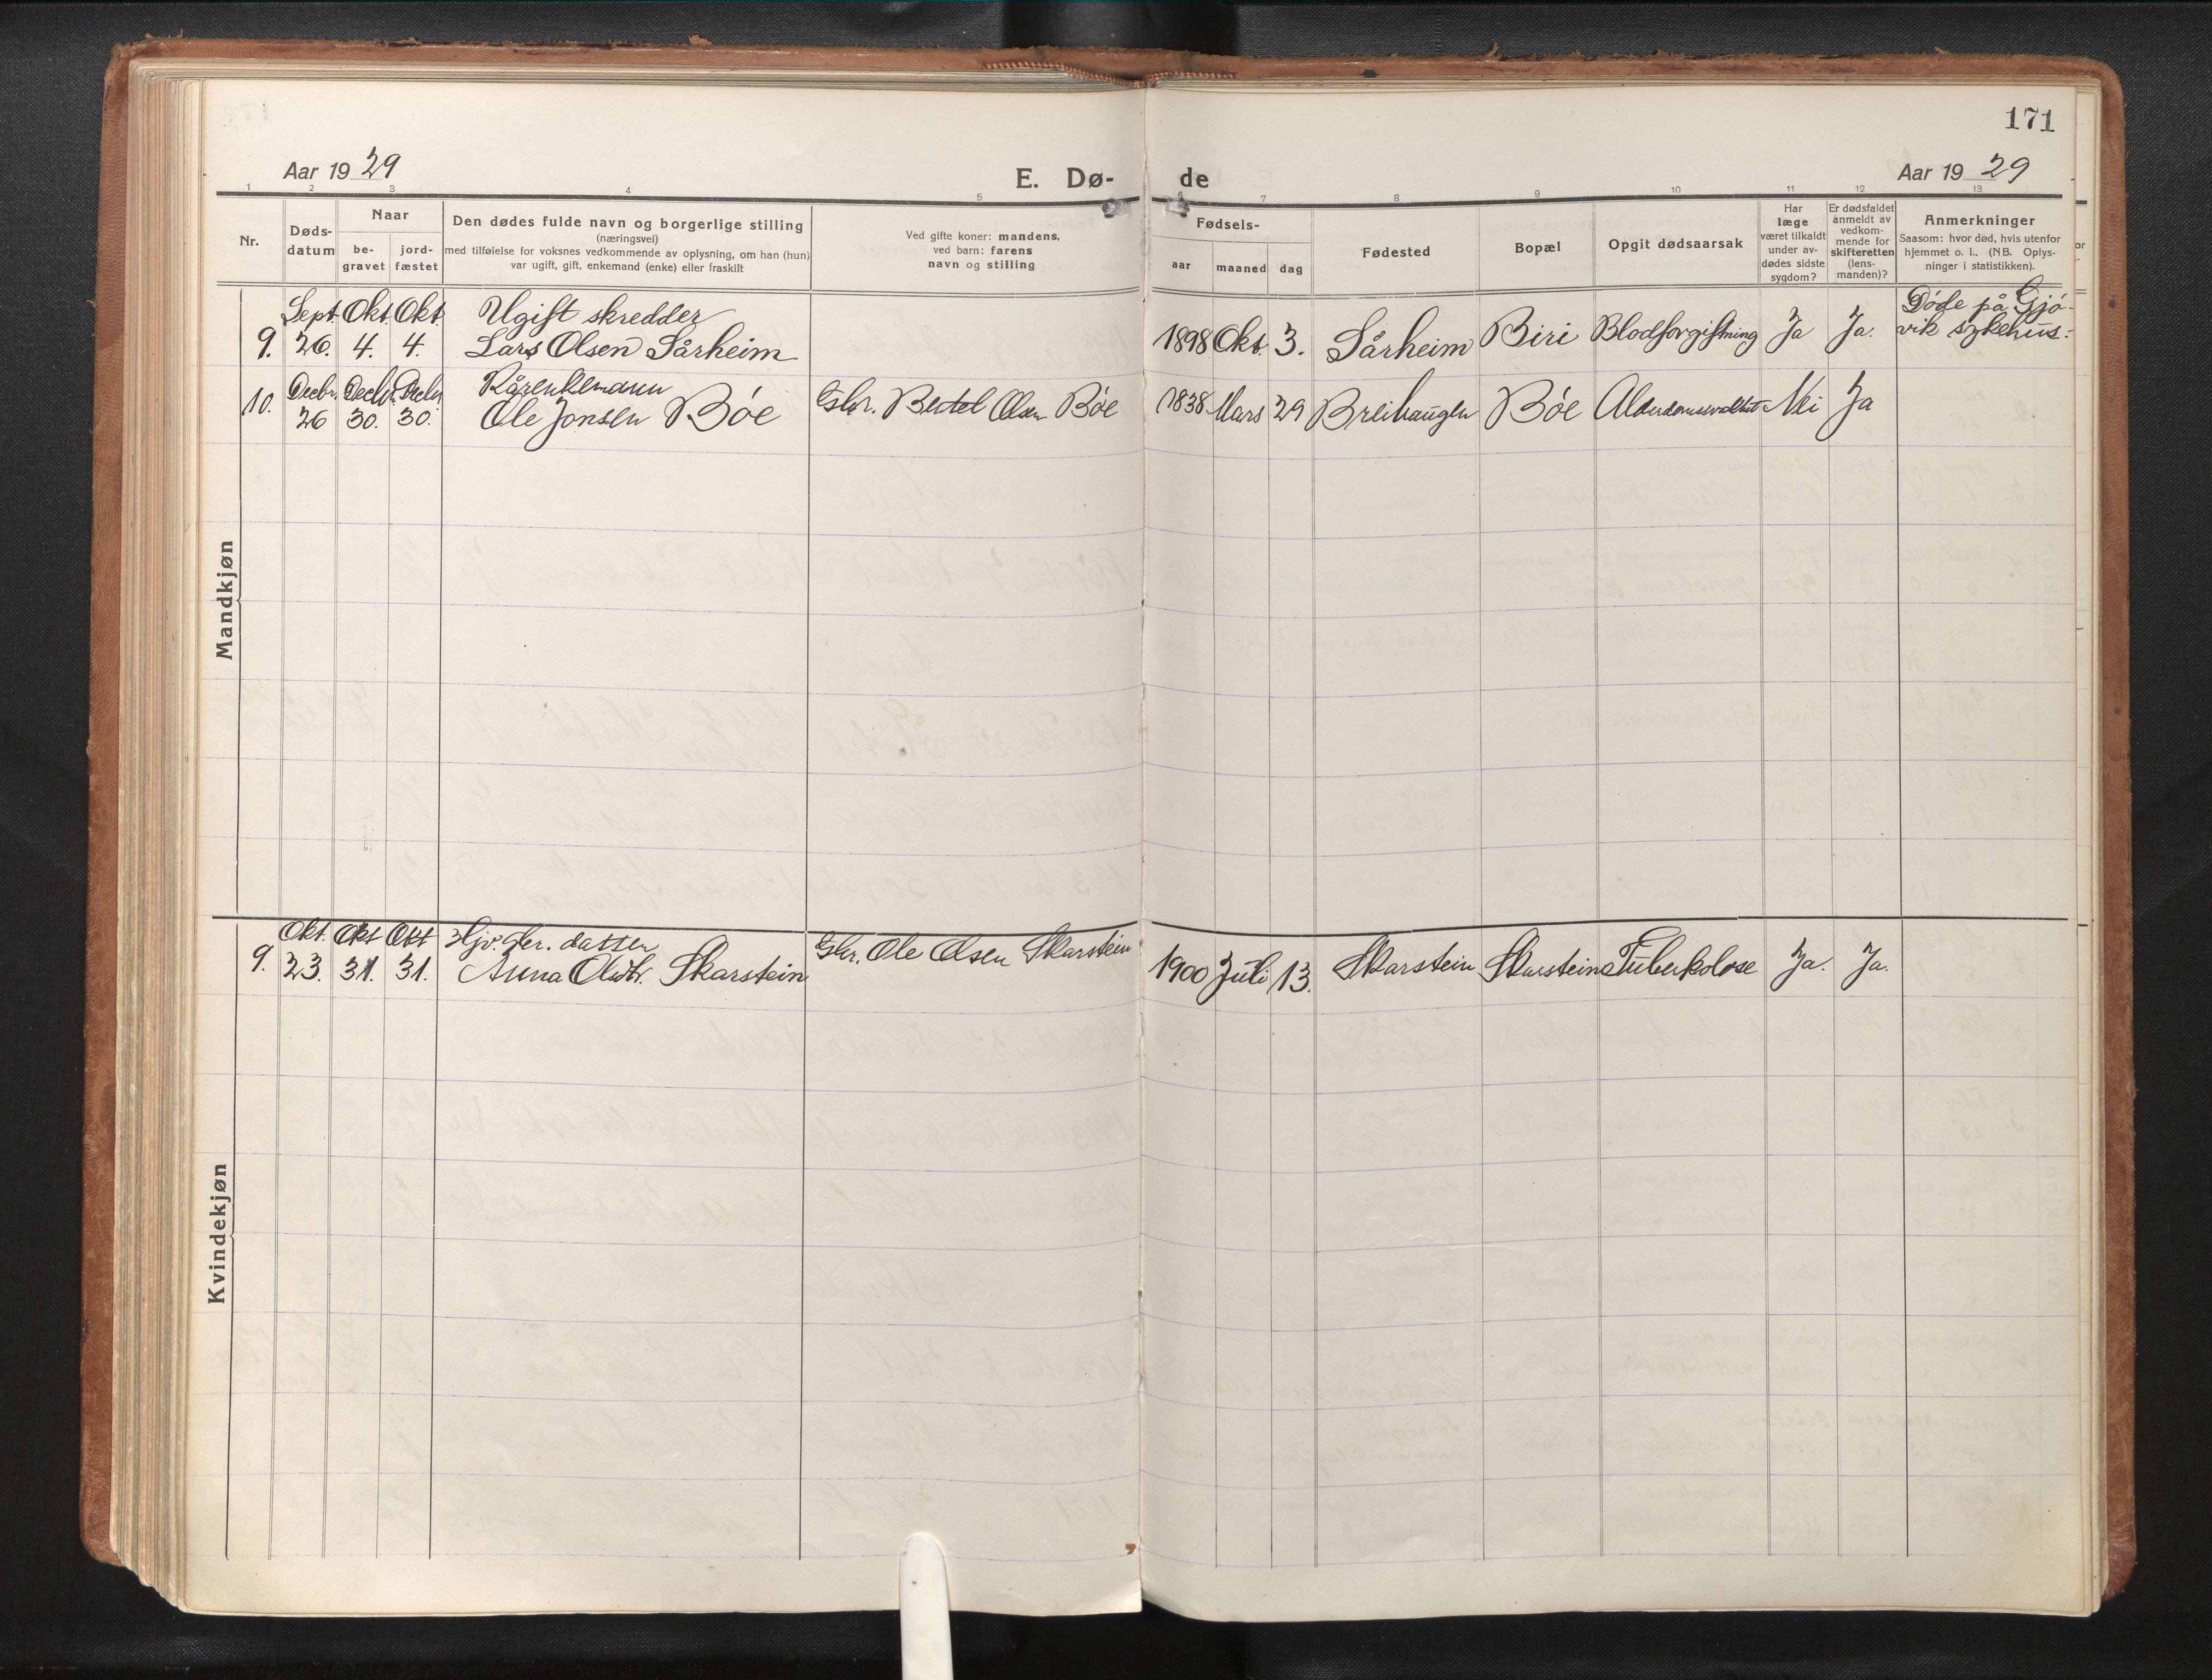 171
Aar 19 29
E. Dø-
de
Aar 19 29
1 2 3 4 5 6 7 8 9 10 11 12 13
Nr.
Døds-
datum
Naar
be-
gravet
jord-
fæstet
Den dødes fulde navn og borgerlige stilling
(næringsvei)
med tilføielse for voksnes vedkommende av oplysning, om han (hun)
var ugift, gift, enkemand (enke) eller fraskilt
Ved gifte koner: mandens,
ved barn: farens
navn og stilling
Fødsels-
aar
maaned
dag
Fødested
Bopæl
Opgit dødsaarsak
Har
læge
været tilkaldt
under av-
dødes sidste
sygdom?
Er dødsfaldet
anmeldt av
vedkom-
mende for
skifteretten
(lens-
manden)?
Anmerkninger
Saasom: hvor død, hvis utenfor
hjemmet o. l., (NB. Oplys-
ninger i statistikken).
Mandkjøn
Sept. Okt. Okt. Ugift skredder Døde på Gjø-
9. 26. 4. 4. Lars Olsen Sårheim 1898 Okt. 3. Sårheim Biri Blodforgiftning Ja Ja. vik sykehus.
Decbr. Decbr. Decbr. Kårenkemann
10. 26 30. 30. Ole Jonsen Bøe Gbr. Bertel Olsen Bøe 1838 Mars 29 Breihaugen Bøe Alderdomssvakhet Nei Ja
Kvindekjøn
Okt. Okt Okt
9. 23. 31. 31. Anna Olsdtr. Skarstein Gbr. Ole Olsen Skarstein 1900 Juli 13. Skarstein Skarstein Tuberkolose Ja. Ja.